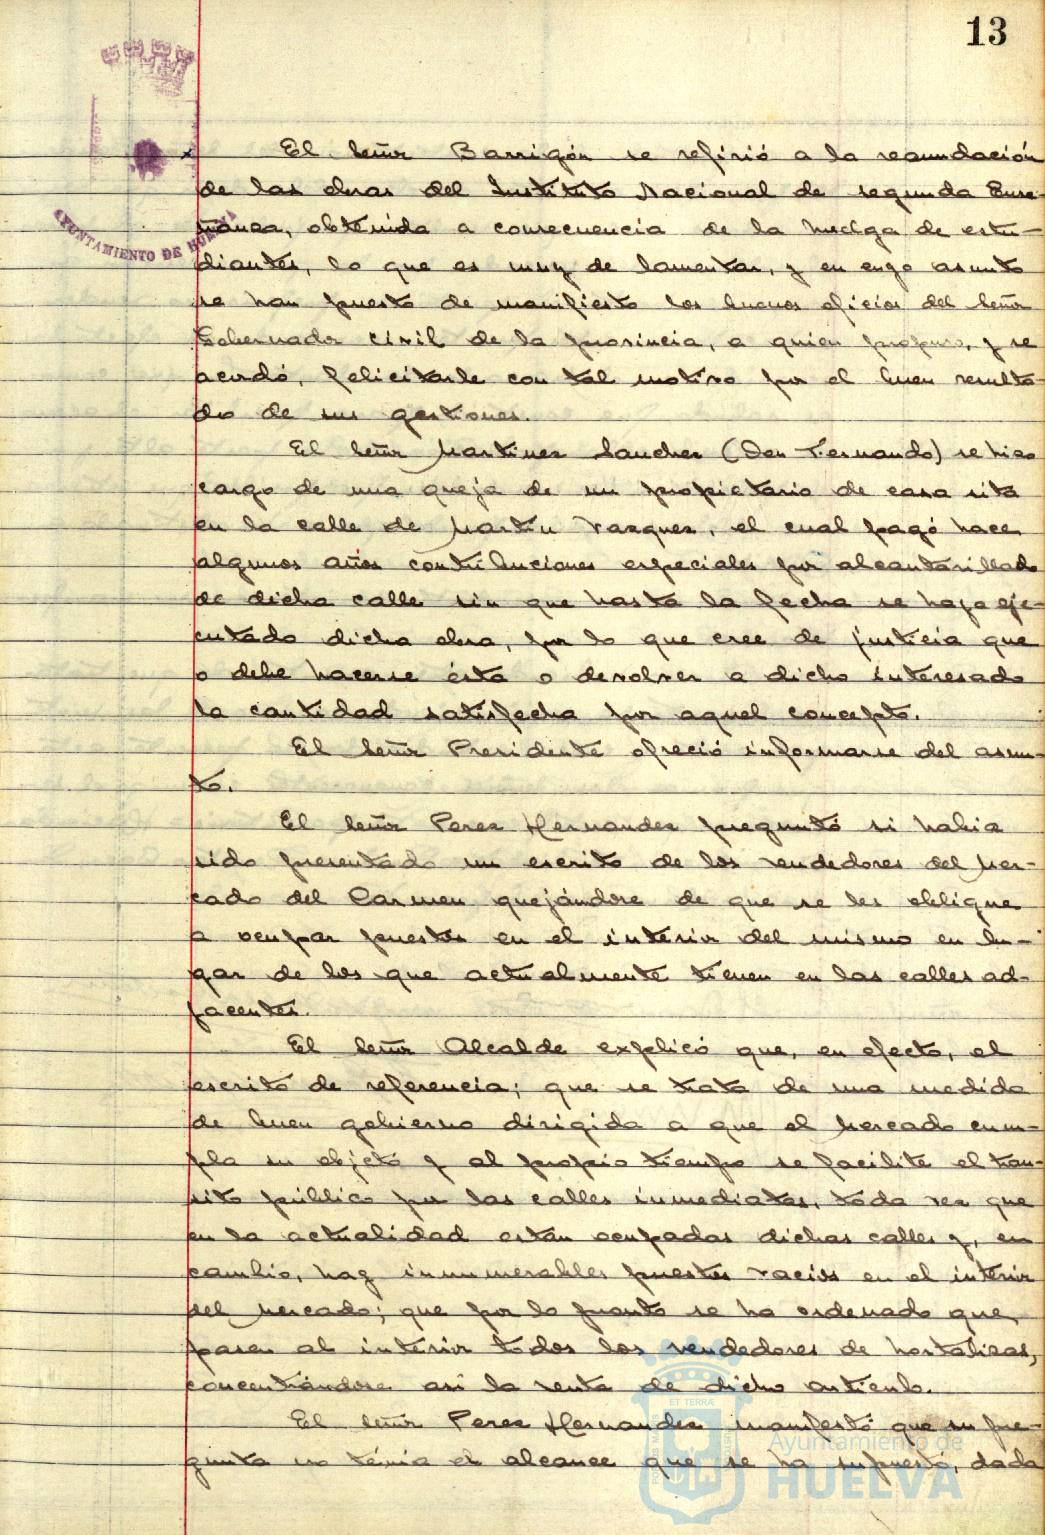 13
El Señor Barrigón se refirió a la reanudación
de las obras del Instituto Nacional de segunda Ense-
ñanza, obtenida a consecuencia de la huelga de estu-
diantes, lo que es muy de lamentar, y en cuyo asunto
se han puesto de manifiesto los buenos oficios del Señor
Gobernador Civil de la provincia, a quien propuso, y se
acordó, felicitarle con tal motivo por el buen resulta-
do de sus gestiones.
El Señor Martinez Sanchez (Don Fernando) se hizo
cargo de una queja de un propietario de casa sita
en la calle de Martín Vazquez, el cual pagó hace
algunos años contribuciones especiales por alcantarillado
de dicha calle sin que hasta la fecha se haya eje-
cutado dicha obra, por lo que cree de justicia que
o debe hacerse ésta o devolver a dicho interesado
la cantidad satisfecha por aquel concepto.
El Señor Presidente ofreció informarse del asun-
to.
El Señor Perez Hernandez preguntó si habia
sido presentado un escrito de los vendedores del Mer-
cado del Carmen quejándose de que se les obligue
a ocupar puestos en el interior del mismo en lu-
gar de los que actualmente tienen en las calles ad-
yacentes.
El Señor Alcalde explicó que, en efecto, el
escrito de referencia; que se trata de una medida
de buen gobierno dirigida a que el Mercado cum-
pla su objeto y al propio tiempo se facilite el tran-
sito público por las calles inmediatas, toda vez que
en la actualidad están ocupadas dichas calles y, en
cambio, hay innumerables puestos vacios en el interior
del Mercado; que por lo pronto se ha ordenado que
pasen al interior todos los vendedores de hortalizas,
concentrándose asi la venta de dicho artículo.
El Señor Perez Hernandez manifestó que su pre-
gunta no tenia el alcance que se ha supuesto, dada
AYUNTAMIENTO DE HUELVA
Ayuntamiento de
HUELVA